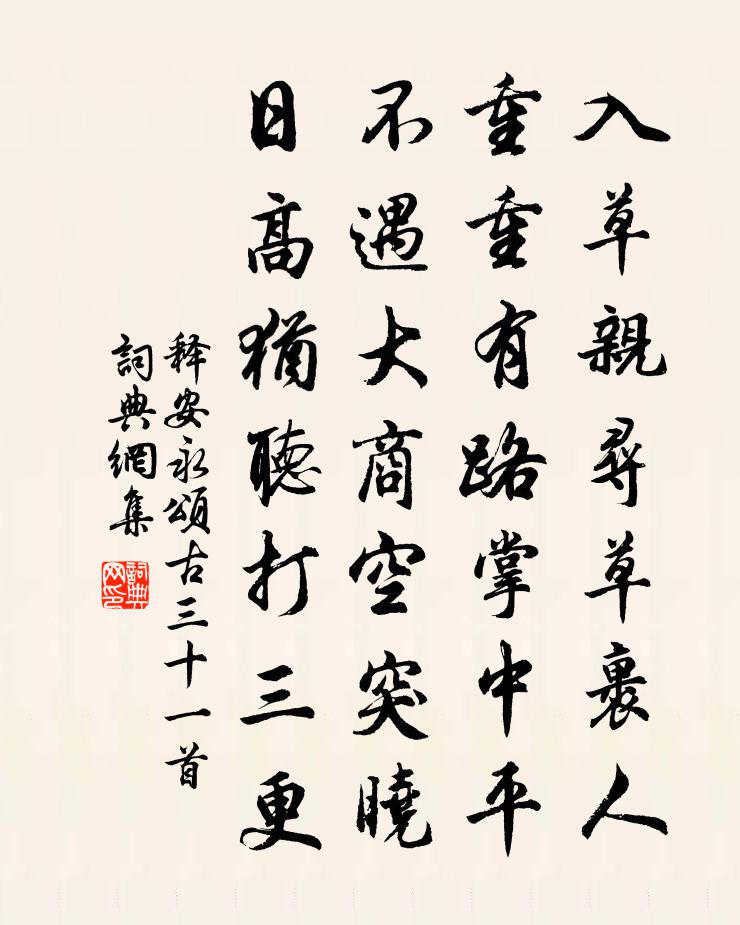 入草親尋草裹人
重重有路掌中平
不遇大商空突曉
日高猶聽打三更
释安永頌古三十一首
詞典網集
詞典网印